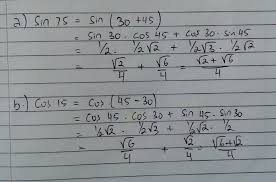 a.) Sin 75 = Sin (30 + 45)
= Sin 30 . Cos 45 + Cos 30 . Sin 45
= 1/2 . 1/2√2 + 1/2√3 . 1/2√2
= √2/4 + √6/4 = √2+√6/4
b.) Cos 15 = Cos (45 - 30)
= Cos 45 . Cos 30 + Sin 45 . Sin 30
= 1/2√2 . 1/2√3 + 1/2√2 . 1/2
= √6/4 + √2/4 = √6+√2/4